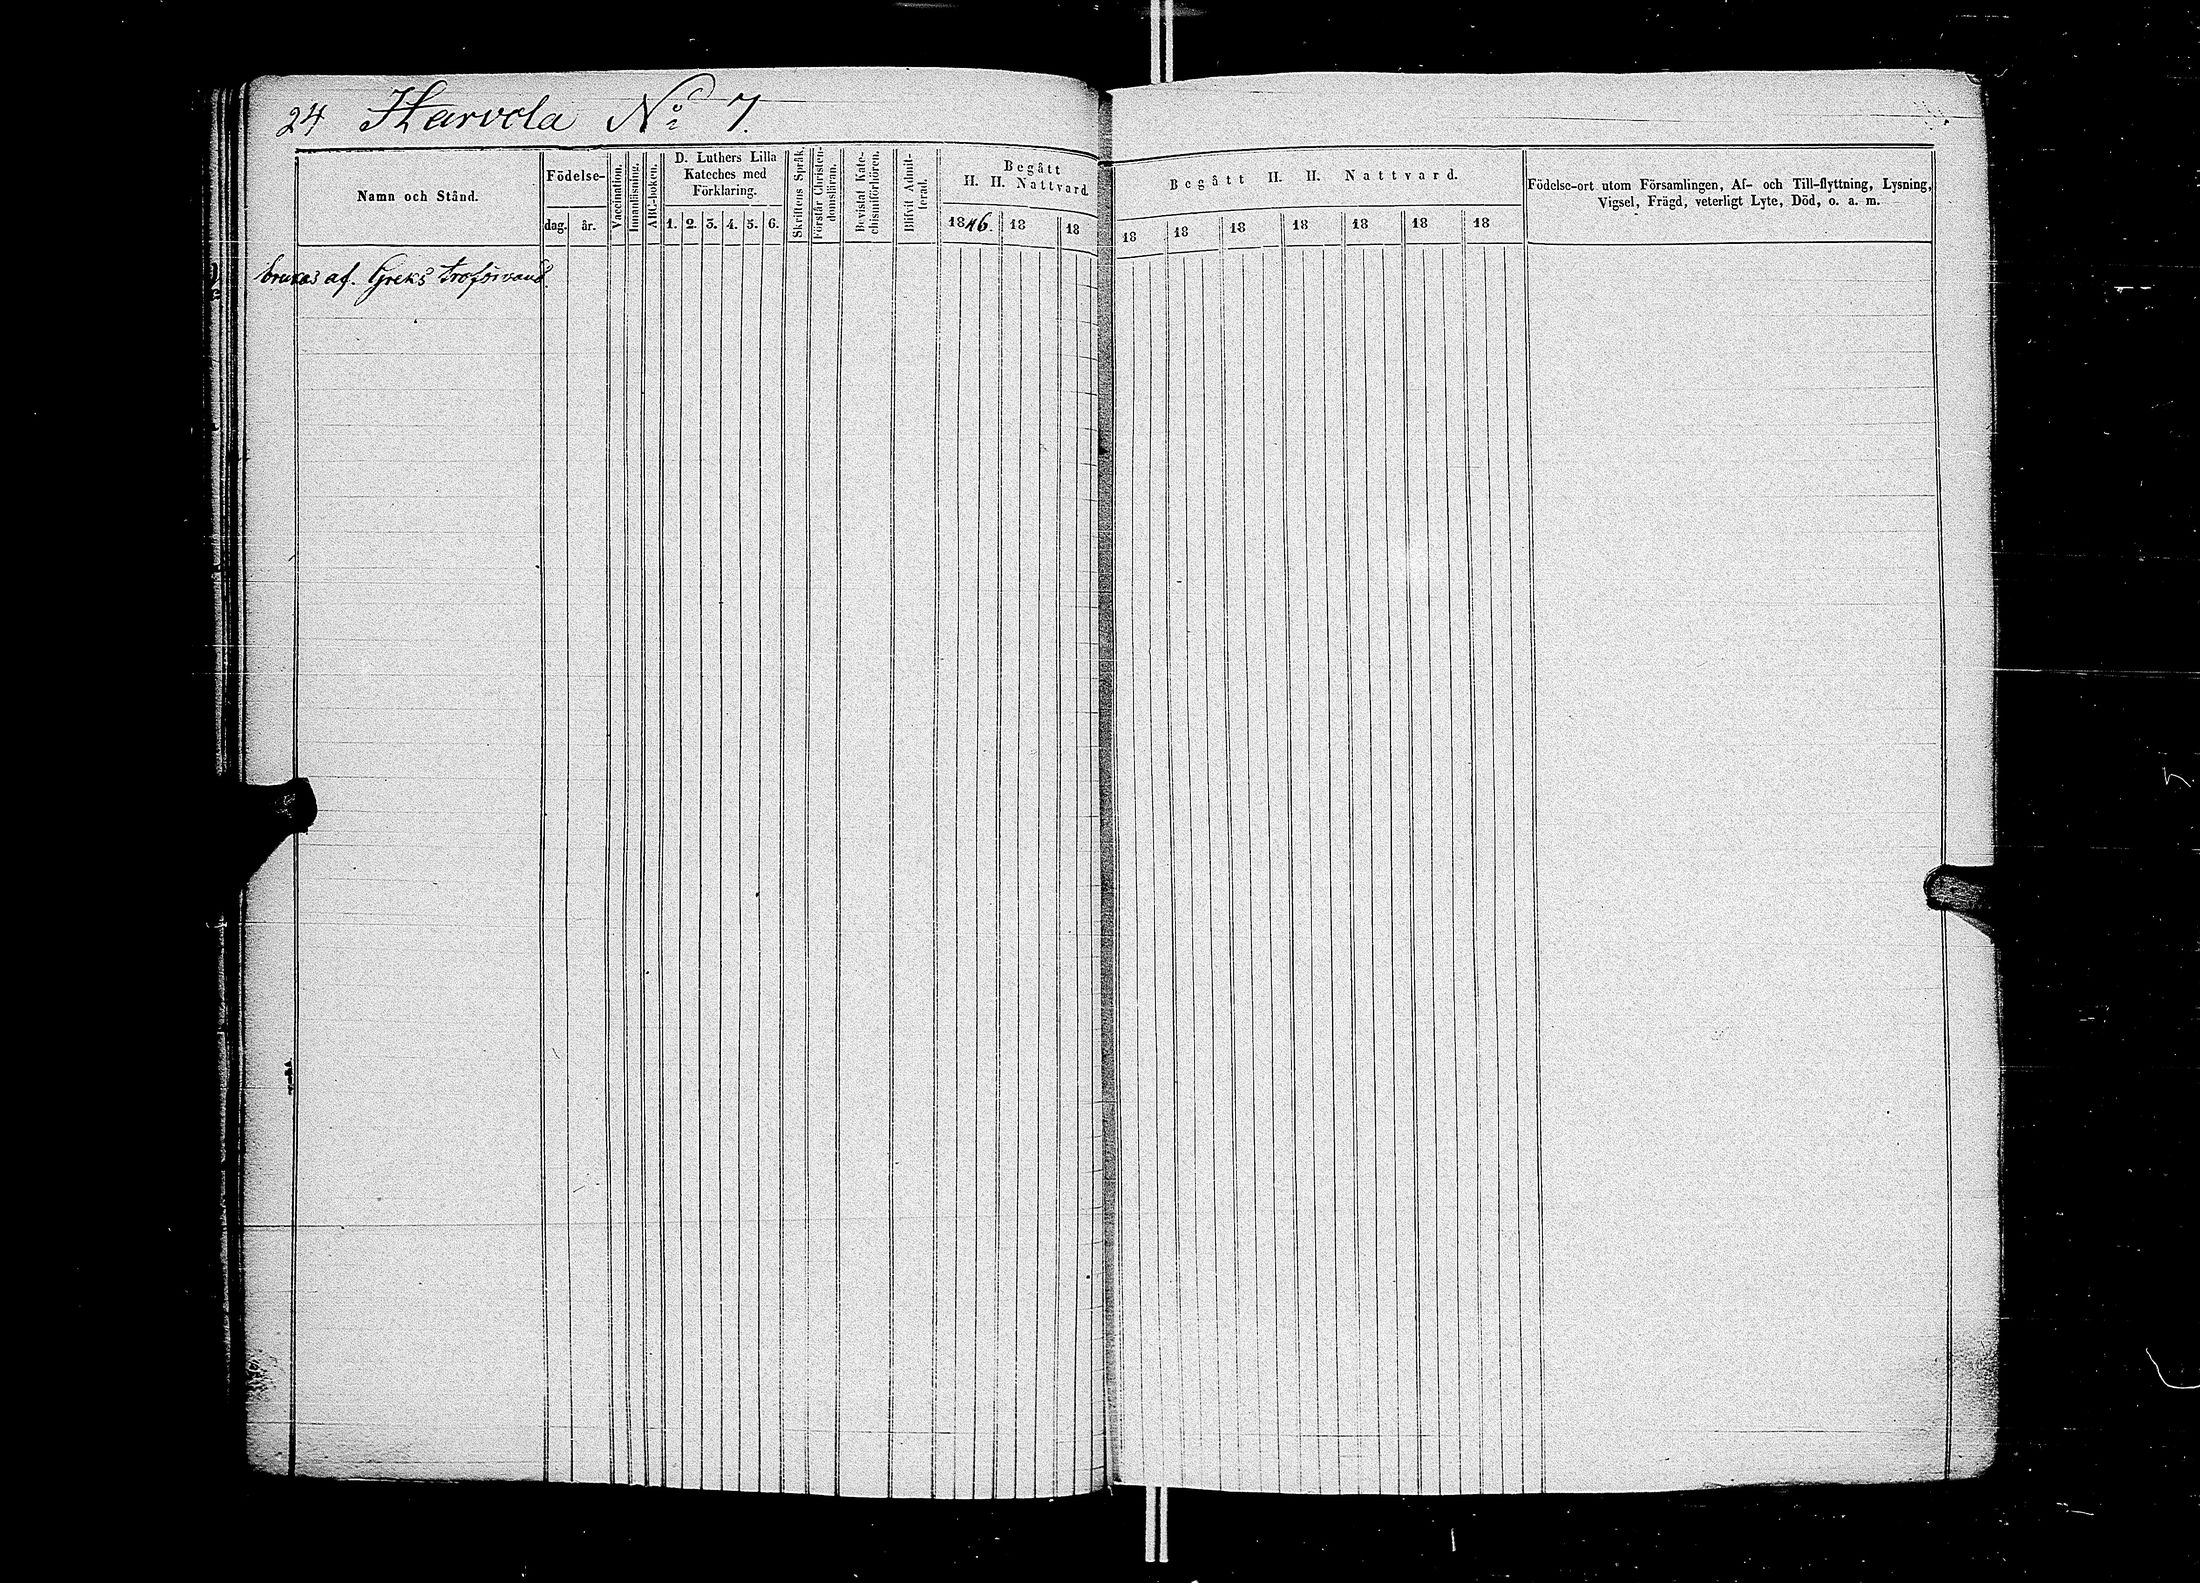 24 Harvola No 7.
Namn och Stånd.
Födelse-
dag. år.
Vaccination.
Innanläsning.
ABC-boken.
D. Luthers Lilla
Kateches med
Förklaring.
1. 2. 3. 4. 5. 6.
Skriftens Språk.
Förstår Christen-
domsläran.
Bevistat Kate-
chismiförhören.
Blifvit Admit-
terad.
Begått
H. H. Nattvard
1846. 18 18
Begått H. H. Nattvard.
18 18 18 18 18 18 18
Födelse-ort utom Församlingen, Af- och Till-flyttning, Lysning,
Vigsel, Frägd, veterligt Lyte, Död, o. a. m.
brukas af Greks